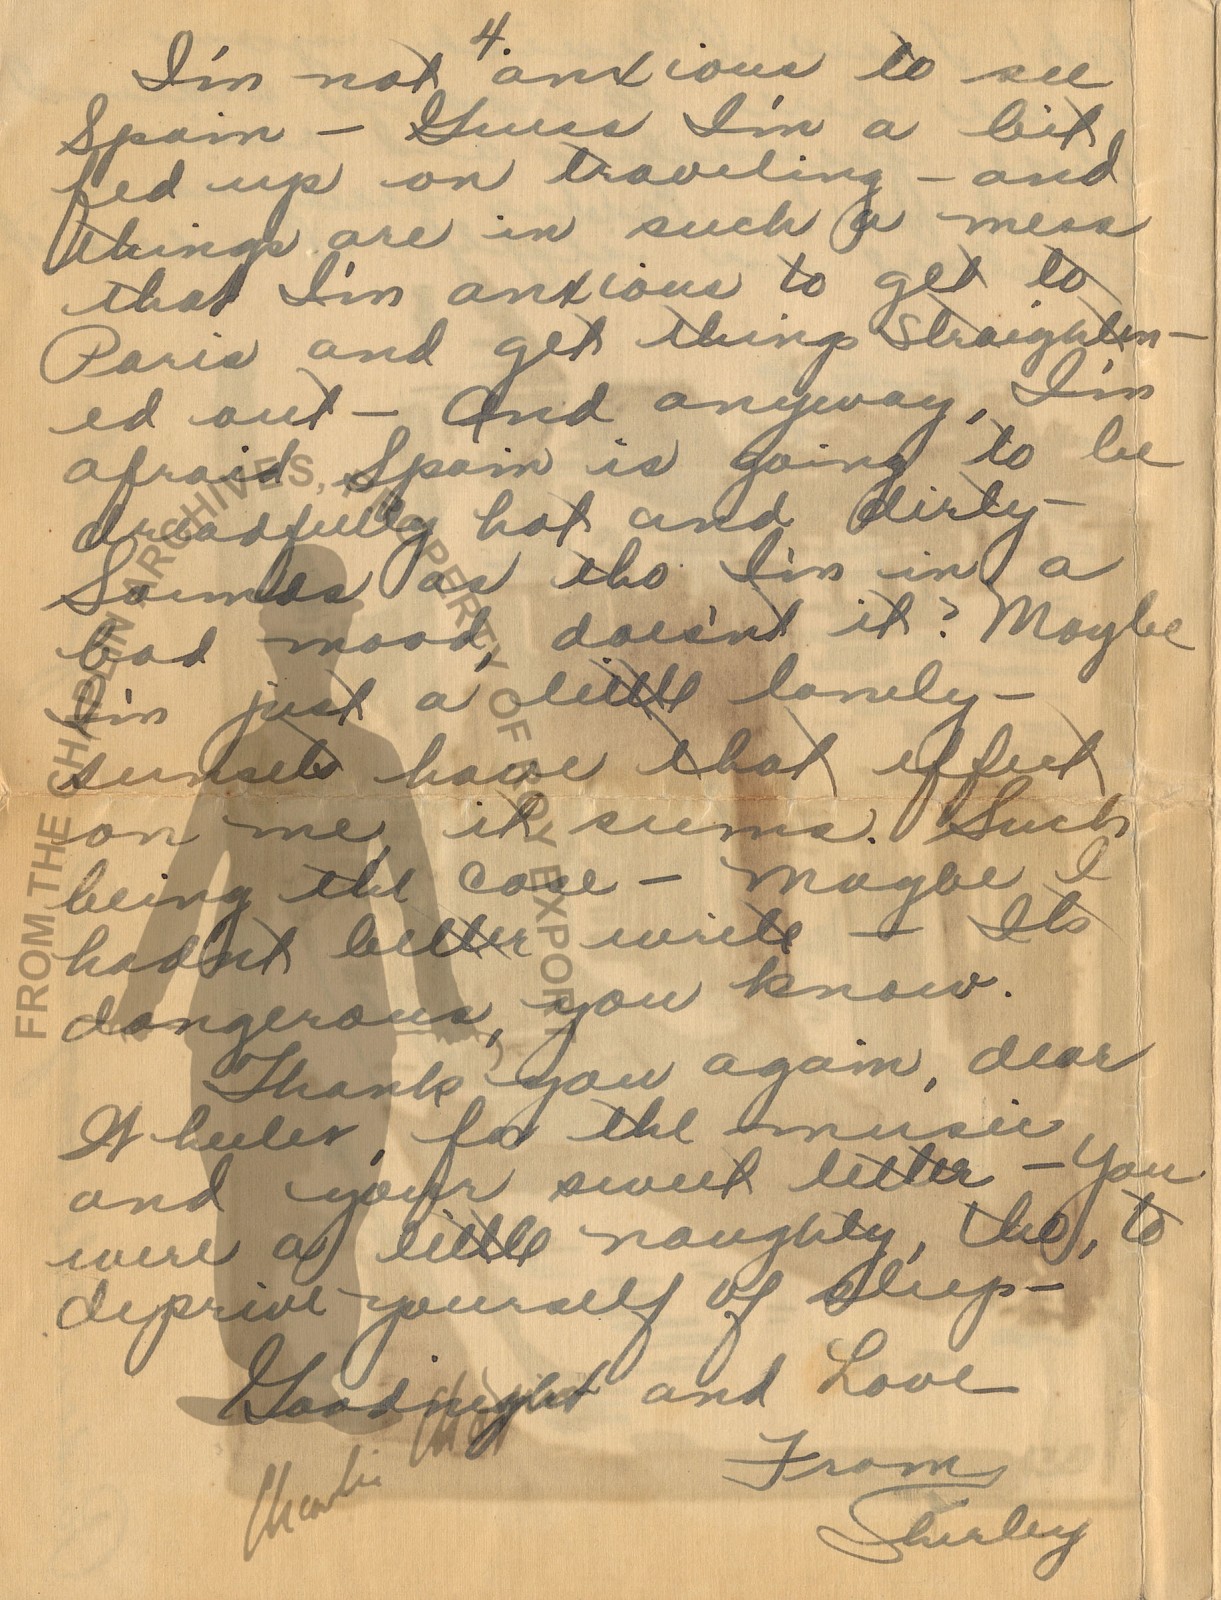 4.
I'm not anxious to see
Spain – Guess I'm a bit
fed up on traveling – and
things are in such a mess
that I'm anxious to get to
Paris and get things straighten-
ed out – And anyway, I'm
afraid Spain is going to be
dreadfully hot and dirty –
Sounds as tho I'm in a
bad mood, doesn't it? Maybe
I'm just a little lonely –
sunsets have that effect
on me, it seems. Such
being the case – maybe I
hadn't better write – Its
dangerous, you know.
Thank you again, dear
Wheeler, for the music
and your sweet letter – You
were a little naughty, tho, to
deprive yourself of sleep –
Goodnight and Love
From
Shirley
FROM THE CHAPLIN ARCHIVES, PROPERTY OF ROY EXPORT
Charlie Chaplin